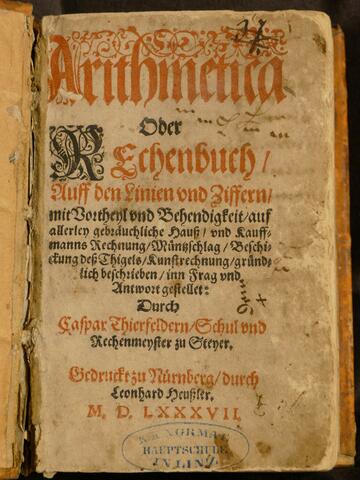 Arithmetica
Oder
REchenbuch/
Auff den Linien vnd Ziffern/
mit Vortheyl vnd Behendigkeit/auf
allerley gebräuchliche Hauß/ vnd Kauff-
manns Rechnung/Müntzschlag/ Beschi-
ckung deß Thigels/Kunstrechnung/gründ-
lich beschrieben/inn Frag vnd
Antwort gestellet:
Durch
Caspar Thierfeldern/Schul vnd
Rechenmeyster zu Steyer.
Gedruckt zu Nürnberg/durch
Leonhard Heußler.
M. D. LXXXVII.
K.K. NORMAL
HAUPTSCHULE
IN LINZ